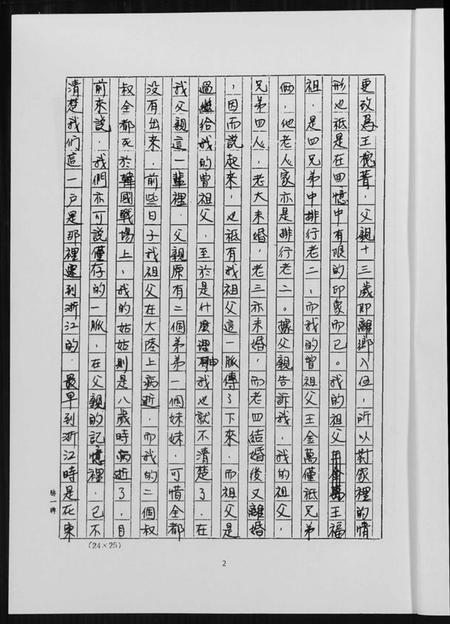 更改為王槐菁，父親十三歲即離鄉入伍，所以對家裡的情
形也祗是在回憶中有限的印象而已。我的祖父王福
祖，是四兄弟中排行老二，而我的曾祖父王金萬僅祗兄弟
倆，他老人家亦是排行老二。據父親告訴我，我的祖父，
兄弟四人，老大未婚，老三亦未婚，而老四結婚後又離婚
，因而說起來，也祗有我祖父這一脈傳了下來，而祖父是
過繼給我的曾祖父，至於是什麼理由我也就不清楚了。在
我父親這一輩裡，父親原有二個弟弟一個妹妹，可惜全都
沒有出來，前些日子我祖父在大陸上病逝，而我的二個叔
叔全都死於韓國戰場上，我的姑姑則是八歲時病逝了，目
前來說，我們亦可說僅存的一脈，在父親的記憶裡，已不
清楚我們這一戶是那裡遷到浙江的，最早到浙江時是在東
(24×25)
2